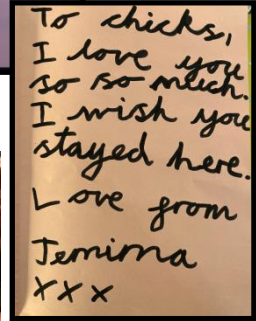 To chicks,
I love you
so so much.
I wish you
stayed here.
Love from
Jemima
xxx